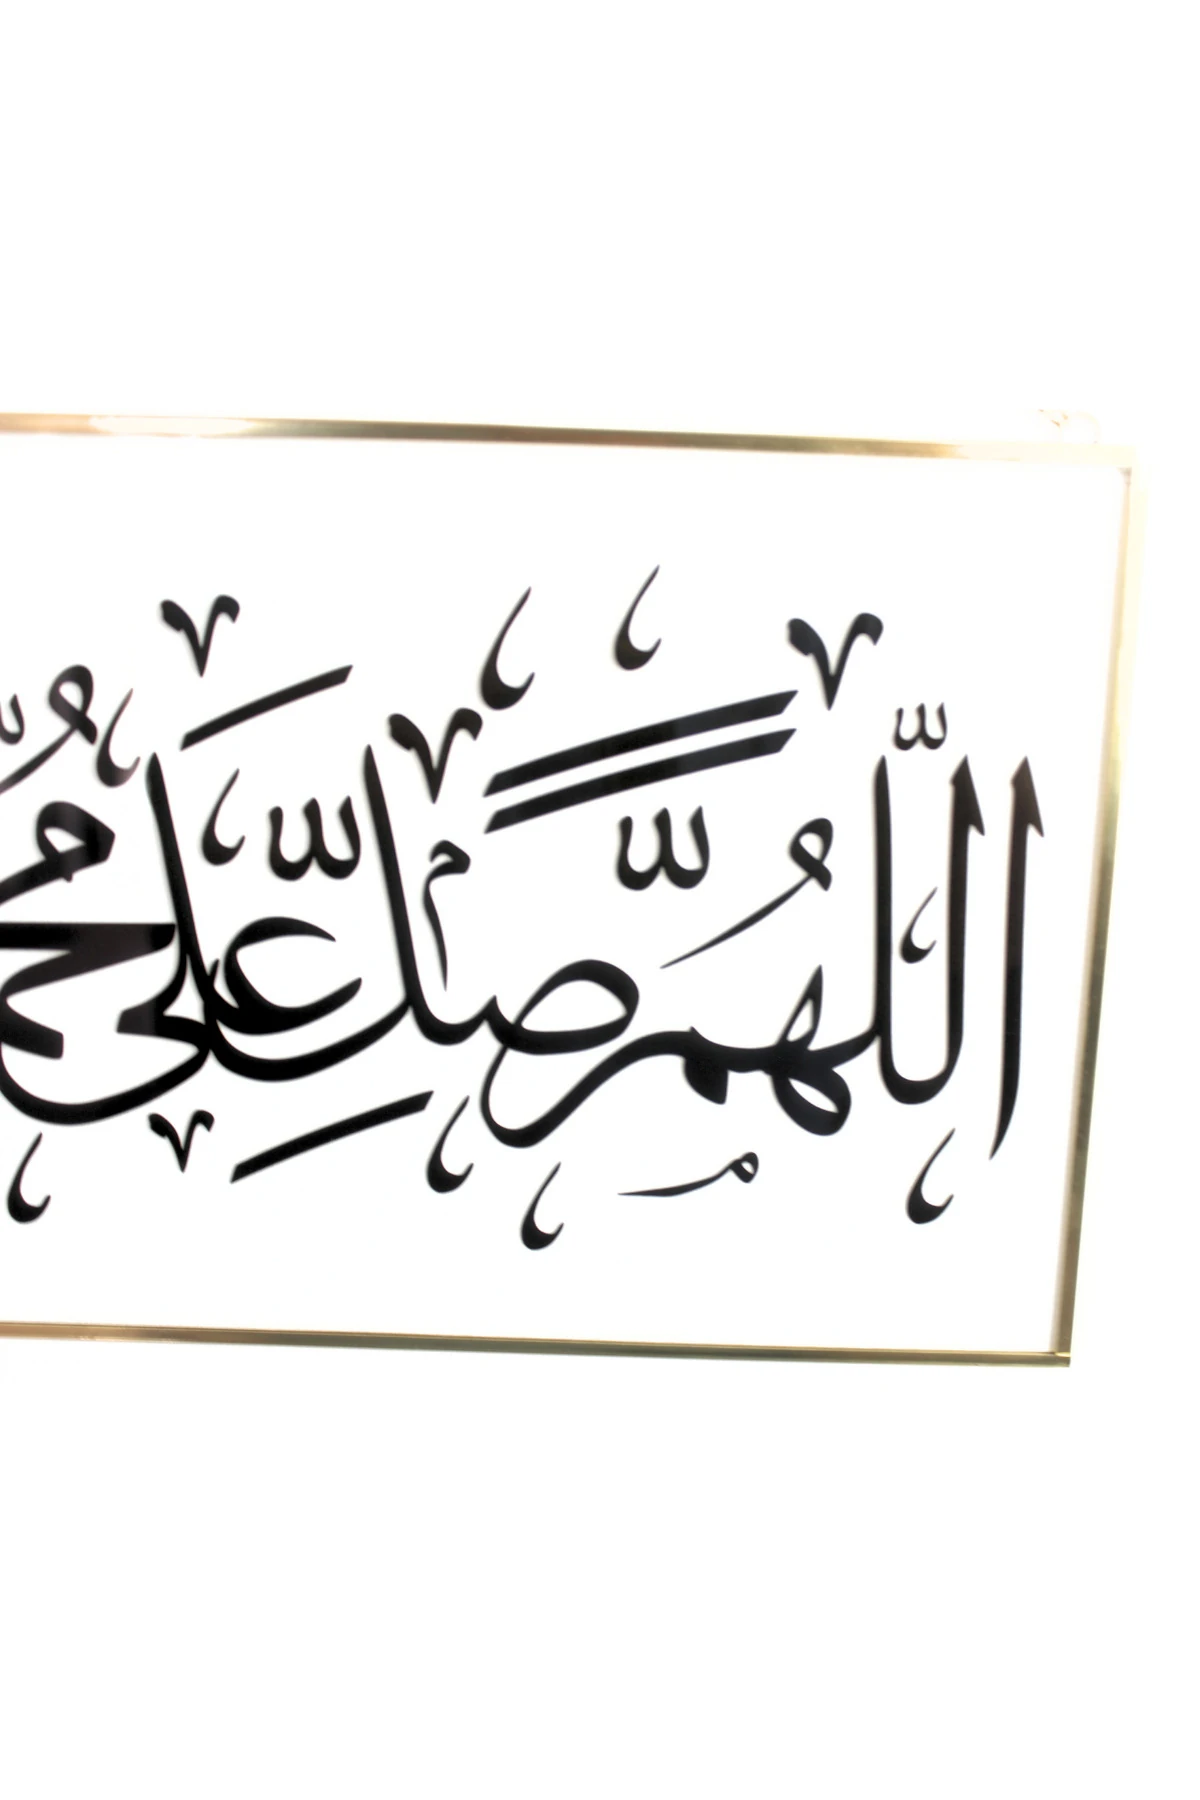 اللّهُمَّ صَلِّ عَلَى